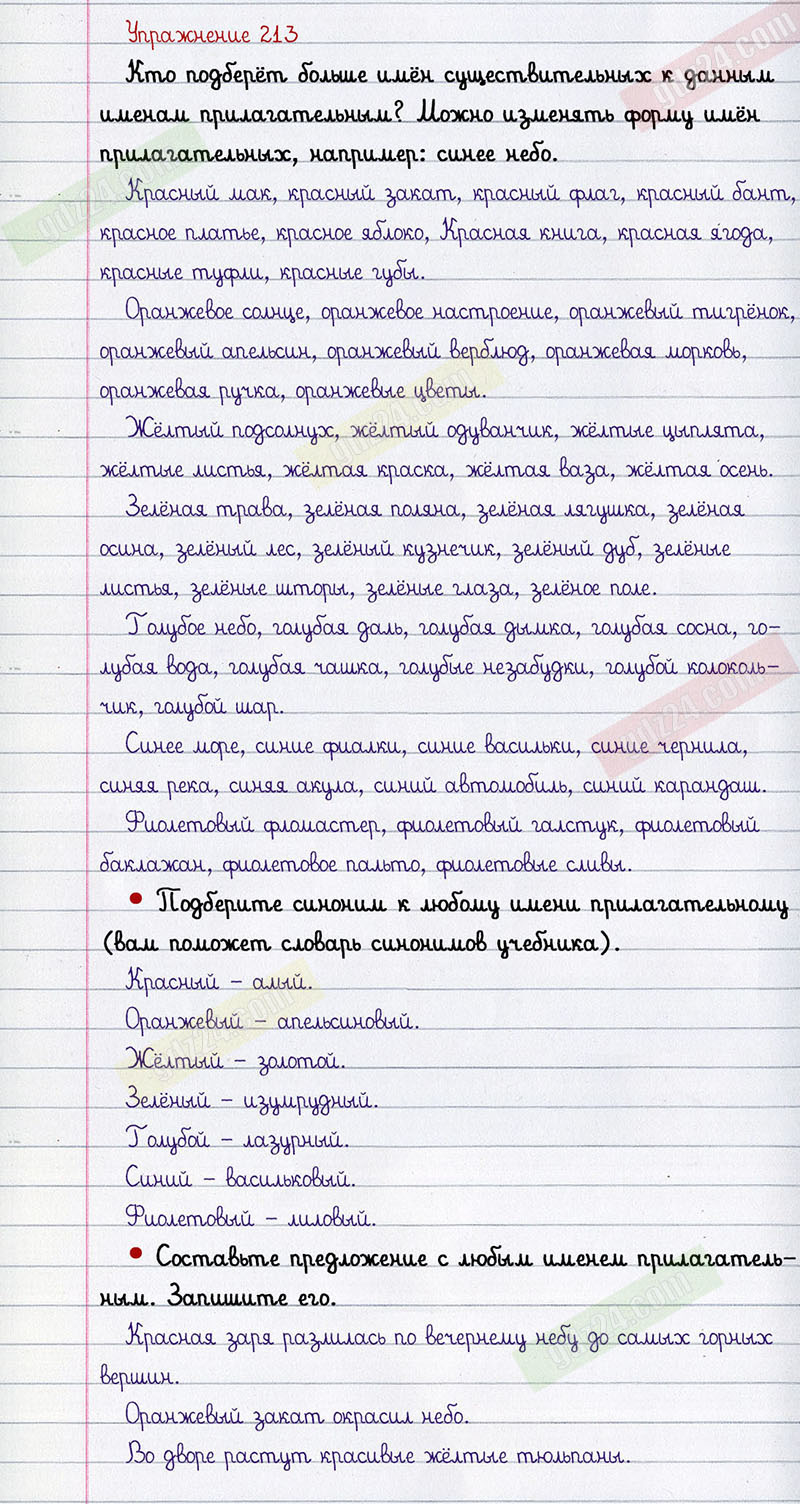 Упражнение 213
Кто подберёт больше имён существительных к данным
именам прилагательным? Можно изменять форму имён
прилагательных, например: синее небо.
Красный мак, красный закат, красный флаг, красный бант,
красное платье, красное яблоко, Красная книга, красная ягода,
красные туфли, красные губы.
Оранжевое солнце, оранжевое настроение, оранжевый тигрёнок,
оранжевый апельсин, оранжевый верблюд, оранжевая морковь,
оранжевая ручка, оранжевые цветы.
Жёлтый подсолнух, жёлтый одуванчик, жёлтые цыплята,
жёлтые листья, жёлтая краска, жёлтая ваза, жёлтая осень.
Зелёная трава, зелёная поляна, зелёная лягушка, зелёная
осина, зелёный лес, зелёный кузнечик, зелёный дуб, зелёные
листья, зелёные шторы, зелёные глаза, зелёное поле.
Голубое небо, голубая даль, голубая дымка, голубая сосна, го-
лубая вода, голубая чашка, голубые незабудки, голубой колоколь-
чик, голубой шар.
Синее море, синие фиалки, синие васильки, синие чернила,
синяя река, синяя акула, синий автомобиль, синий карандаш.
Фиолетовый фломастер, фиолетовый галстук, фиолетовый
баклажан, фиолетовое пальто, фиолетовые сливы.
• Подберите синоним к любому имени прилагательному
(вам поможет словарь синонимов учебника).
Красный – алый.
Оранжевый – апельсиновый.
Жёлтый – золотой.
Зелёный – изумрудный.
Голубой – лазурный.
Синий – васильковый.
Фиолетовый – лиловый.
• Составьте предложение с любым именем прилагатель-
ным. Запишите его.
Красная заря разлилась по вечернему небу до самых горных
вершин.
Оранжевый закат окрасил небо.
Во дворе растут красивые жёлтые тюльпаны.
gdz24.com
gdz24.com
gdz24.com
gdz24.com
gdz24.com
gdz24.com